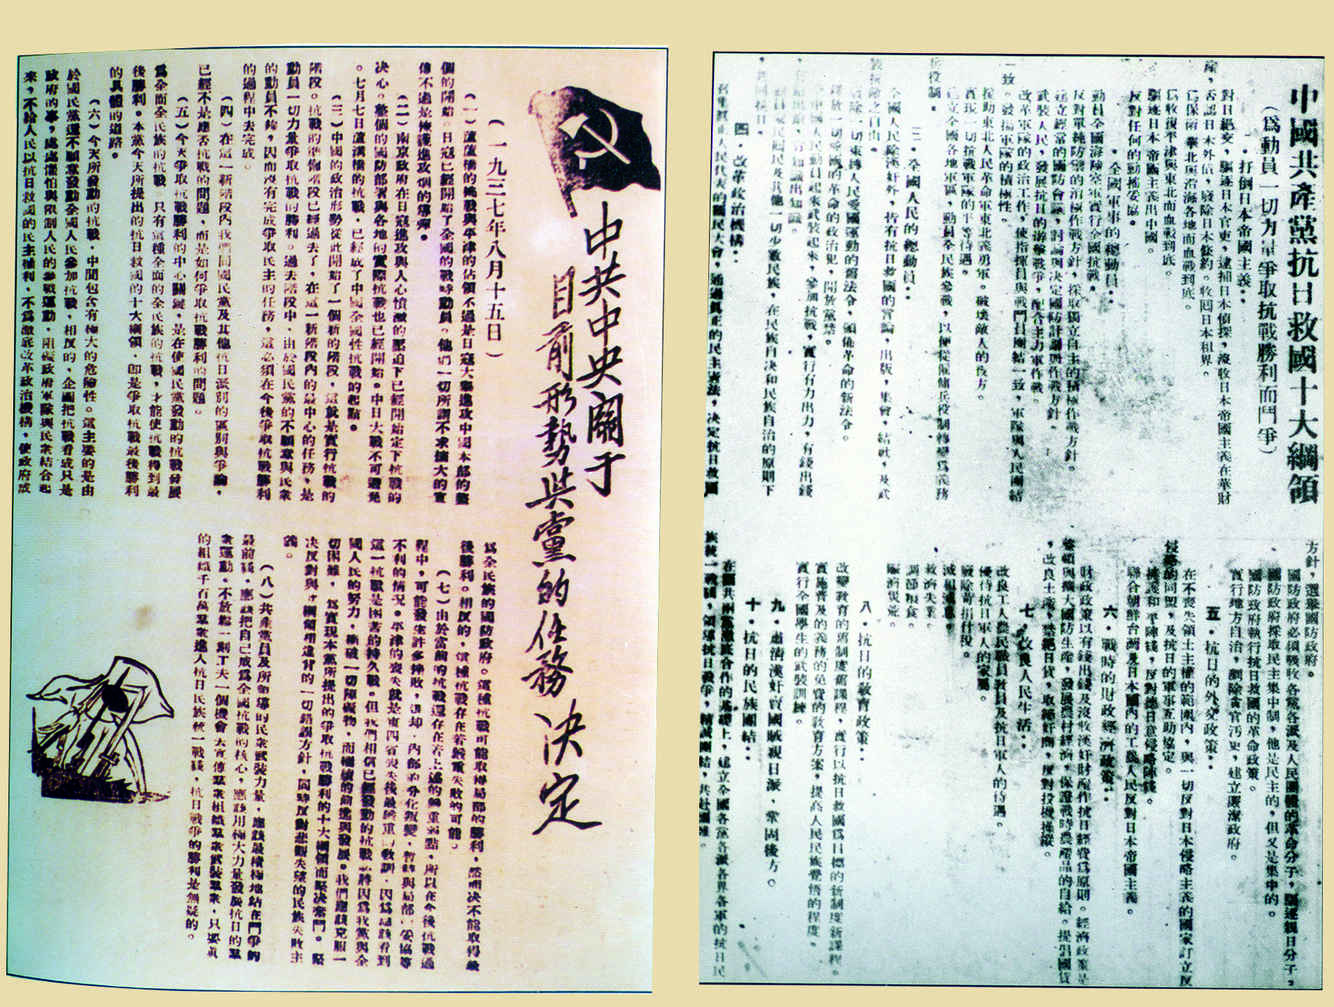 中共中央關于
目前形勢與黨的任務決定
（一九三七年八月十五日）
（一）蘆溝橋的挑戰與平津的佔領不過是日寇大舉進攻中國本部的整
個的開始。日寇已經開始了全國的戰時動員。他們一切所謂不求擴大的宣
傳不過是掩護進攻的烟幕彈。
（二）南京政府在日寇進攻與人心憤激的壓迫下已經開始定下抗戰的
決心。整個的國防部署與各地的實際抗戰也已經開始。中日大戰不可避免
。七月七日蘆溝橋的抗戰，已經成了中國全國性抗戰的起點。
（三）中國的政治形勢從此開始了一個新的階段，這就是實行抗戰的
階段。抗戰的準備階段已經過去了，在這一新階段內的最中心的任務，是
動員一切力量爭取抗戰的勝利。過去階段中，由於國民黨的不願意與民衆
的動員不夠，因而沒有完成爭取民主的任務，這必須在今後爭取抗戰勝利
的過程中去完成。
（四）在這一新階段內我們同國民黨及其他抗日派別的區別與爭論，
已經不是應否抗戰的問題，而是如何爭取抗戰勝利的問題。
（五）今天爭取抗戰勝利的中心關鍵，是在使國民黨發動的抗戰發展
爲全面全民族的抗戰。只有這種全面的全民族的抗戰，才能使抗戰得到最
後勝利。本黨今天所提出的抗日救國的十大綱領，即是爭取抗戰最後勝利
的具體的道路。
（六）今天所發動的抗戰，中間包含有極大的危險性。這主要的是由
於國民黨還不願意發動全國人民參加抗戰，相反的，企圖把抗戰看成只是
政府的事，處處懼怕與限制人民的參戰運動，阻礙政府軍隊與民衆結合起
來，不給人民以抗日救國的民主權利，不爲澈底改革政治機構，使政府成
爲全民族的國防政府。這種抗戰可能取得局部的勝利，然而決不能取得最
後勝利。相反的，這種抗戰存在着嚴重失敗的可能。
（七）由於當前的抗戰還存在着上述的嚴重弱點，所以在今後抗戰過
程中，可能發生許多挫敗，退却，內部的分化叛變，暫時與局部的妥協等
不利的情況。平津的喪失就是東四省喪失後最嚴重的教訓。因爲應該看到
這一抗戰是困苦的持久戰。但我們相信已經發動的抗戰必將因爲我黨與全
國人民的努力，衝破一切障礙物，而繼續的前進與發展。我們應該克服一
切困難，爲實現本黨所提出的爭取抗戰勝利的十大綱領而堅決奮鬥。堅
決反對與此綱領相違背的一切錯誤方針，同時反對悲觀失望的民族失敗主
義。
（八）共產黨員及所領導的民衆武裝力量，應該最積極地站在鬥爭的
最前綫，應該把自己成爲全國抗戰的核心，應該用極大力量發展抗日的羣
衆運動。不放鬆一刻工夫一個機會去宣傳羣衆組織羣衆武裝羣衆，只要眞
的組織千百萬羣衆進入抗日民族統一戰綫，抗日戰爭的勝利是無疑的。
中國共產黨抗日救國十大綱領
（爲動員一切力量爭取抗戰勝利而鬥爭）
一．打倒日本帝國主義：
對日絕交，驅逐日本官吏，逮捕日本偵探，沒收日本帝國主義在華財
產，否認日本外債，廢除日本條約。收回日本租界。
爲保衛華北與沿海各地而血戰到底。
爲收復平津與東北而血戰到底。
驅逐日本帝國主義出中國。
反對任何的動搖妥協。
二．全國軍事的總動員：
動員全國海陸空軍實行全國抗戰。
反對單純防禦的消極作戰方針，採取獨立自主的積極作戰方針。
設立經常的國防會議，討論與決定國防計劃與作戰方針。
武裝人民，發展抗日的游擊戰爭，配合主力軍作戰。
改革軍隊的政治工作，使指揮員與戰鬥員團結一致，軍隊與人民團結
一致。發揚軍隊的積極性。
援助東北人民革命軍東北義勇軍。破壞敵人的後方。
實現一切抗戰軍隊的平等待遇。
建立全國各地軍區，動員全民族參戰，以便從僱傭兵役制轉變爲義務
兵役制。
三．全國人民的總動員：
全國人民除漢奸外，皆有抗日救國的言論，出版，集會，結社，及武
裝抗敵之自由。
廢除一切束縛人民愛國運動的舊法令，頒佈革命的新法令。
釋放一切愛國的革命的政治犯，開放黨禁。
全中國人民動員起來武裝起來，參加抗戰，實行有力出力，有錢出錢
動員蒙民回民及其他一切少數民族，在民族自決和民族自治的原則下
四．改革政治機構：
召集眞正人民代表的國民大會，通過眞正的民主憲法，決定抗日救國
方針，選舉國防政府。
國防政府必須吸收各黨各派及人民團體的革命分子，驅逐親日分子。
國防政府採取民主集中制，他是民主的，但又是集中的。
國防政府執行抗日救國的革命政策。
實行地方自治，剷除貪官污吏，建立廉潔政府。
五．抗日的外交政策：
在不喪失領土主權的範圍內，與一切反對日本侵略主義的國家訂立反
侵略的同盟，及抗日的軍事互助協定。
擁護和平陣綫，反對德日意侵略陣綫。
聯合朝鮮台灣及日本國內的工農人民反對日本帝國主義。
六．戰時的財政經濟政策：
財政政策以有錢出錢及沒收漢奸財產作抗日經費爲原則。經濟政策是
整頓與擴大國防生產，發展農村經濟，保證戰時農產品的自給。提倡國貨
，改良土產，禁絕日貨，取締奸商，反對投機操縱。
七．改良人民生活：
改良工人農民職員教員及抗日軍人的待遇。
優待抗日軍人的家屬。
廢除苛捐雜稅。
減租減息。
救濟失業。
調節糧食。
賑濟災荒。
八．抗日的教育政策：
改變教育的舊制度舊課程，實行以抗日救國爲目標的新制度新課程。
實施普及的義務的免費的教育方案，提高人民民族覺悟的程度。
實行全國學生的武裝訓練。
九．肅清漢奸賣國賊親日派，鞏固後方。
十．抗日的民族團結：
在國共兩黨澈底合作的基礎上，建立全國各黨各派各界各軍的抗日民
族統一戰綫，領導抗日戰爭，精誠團結，共赴國難。